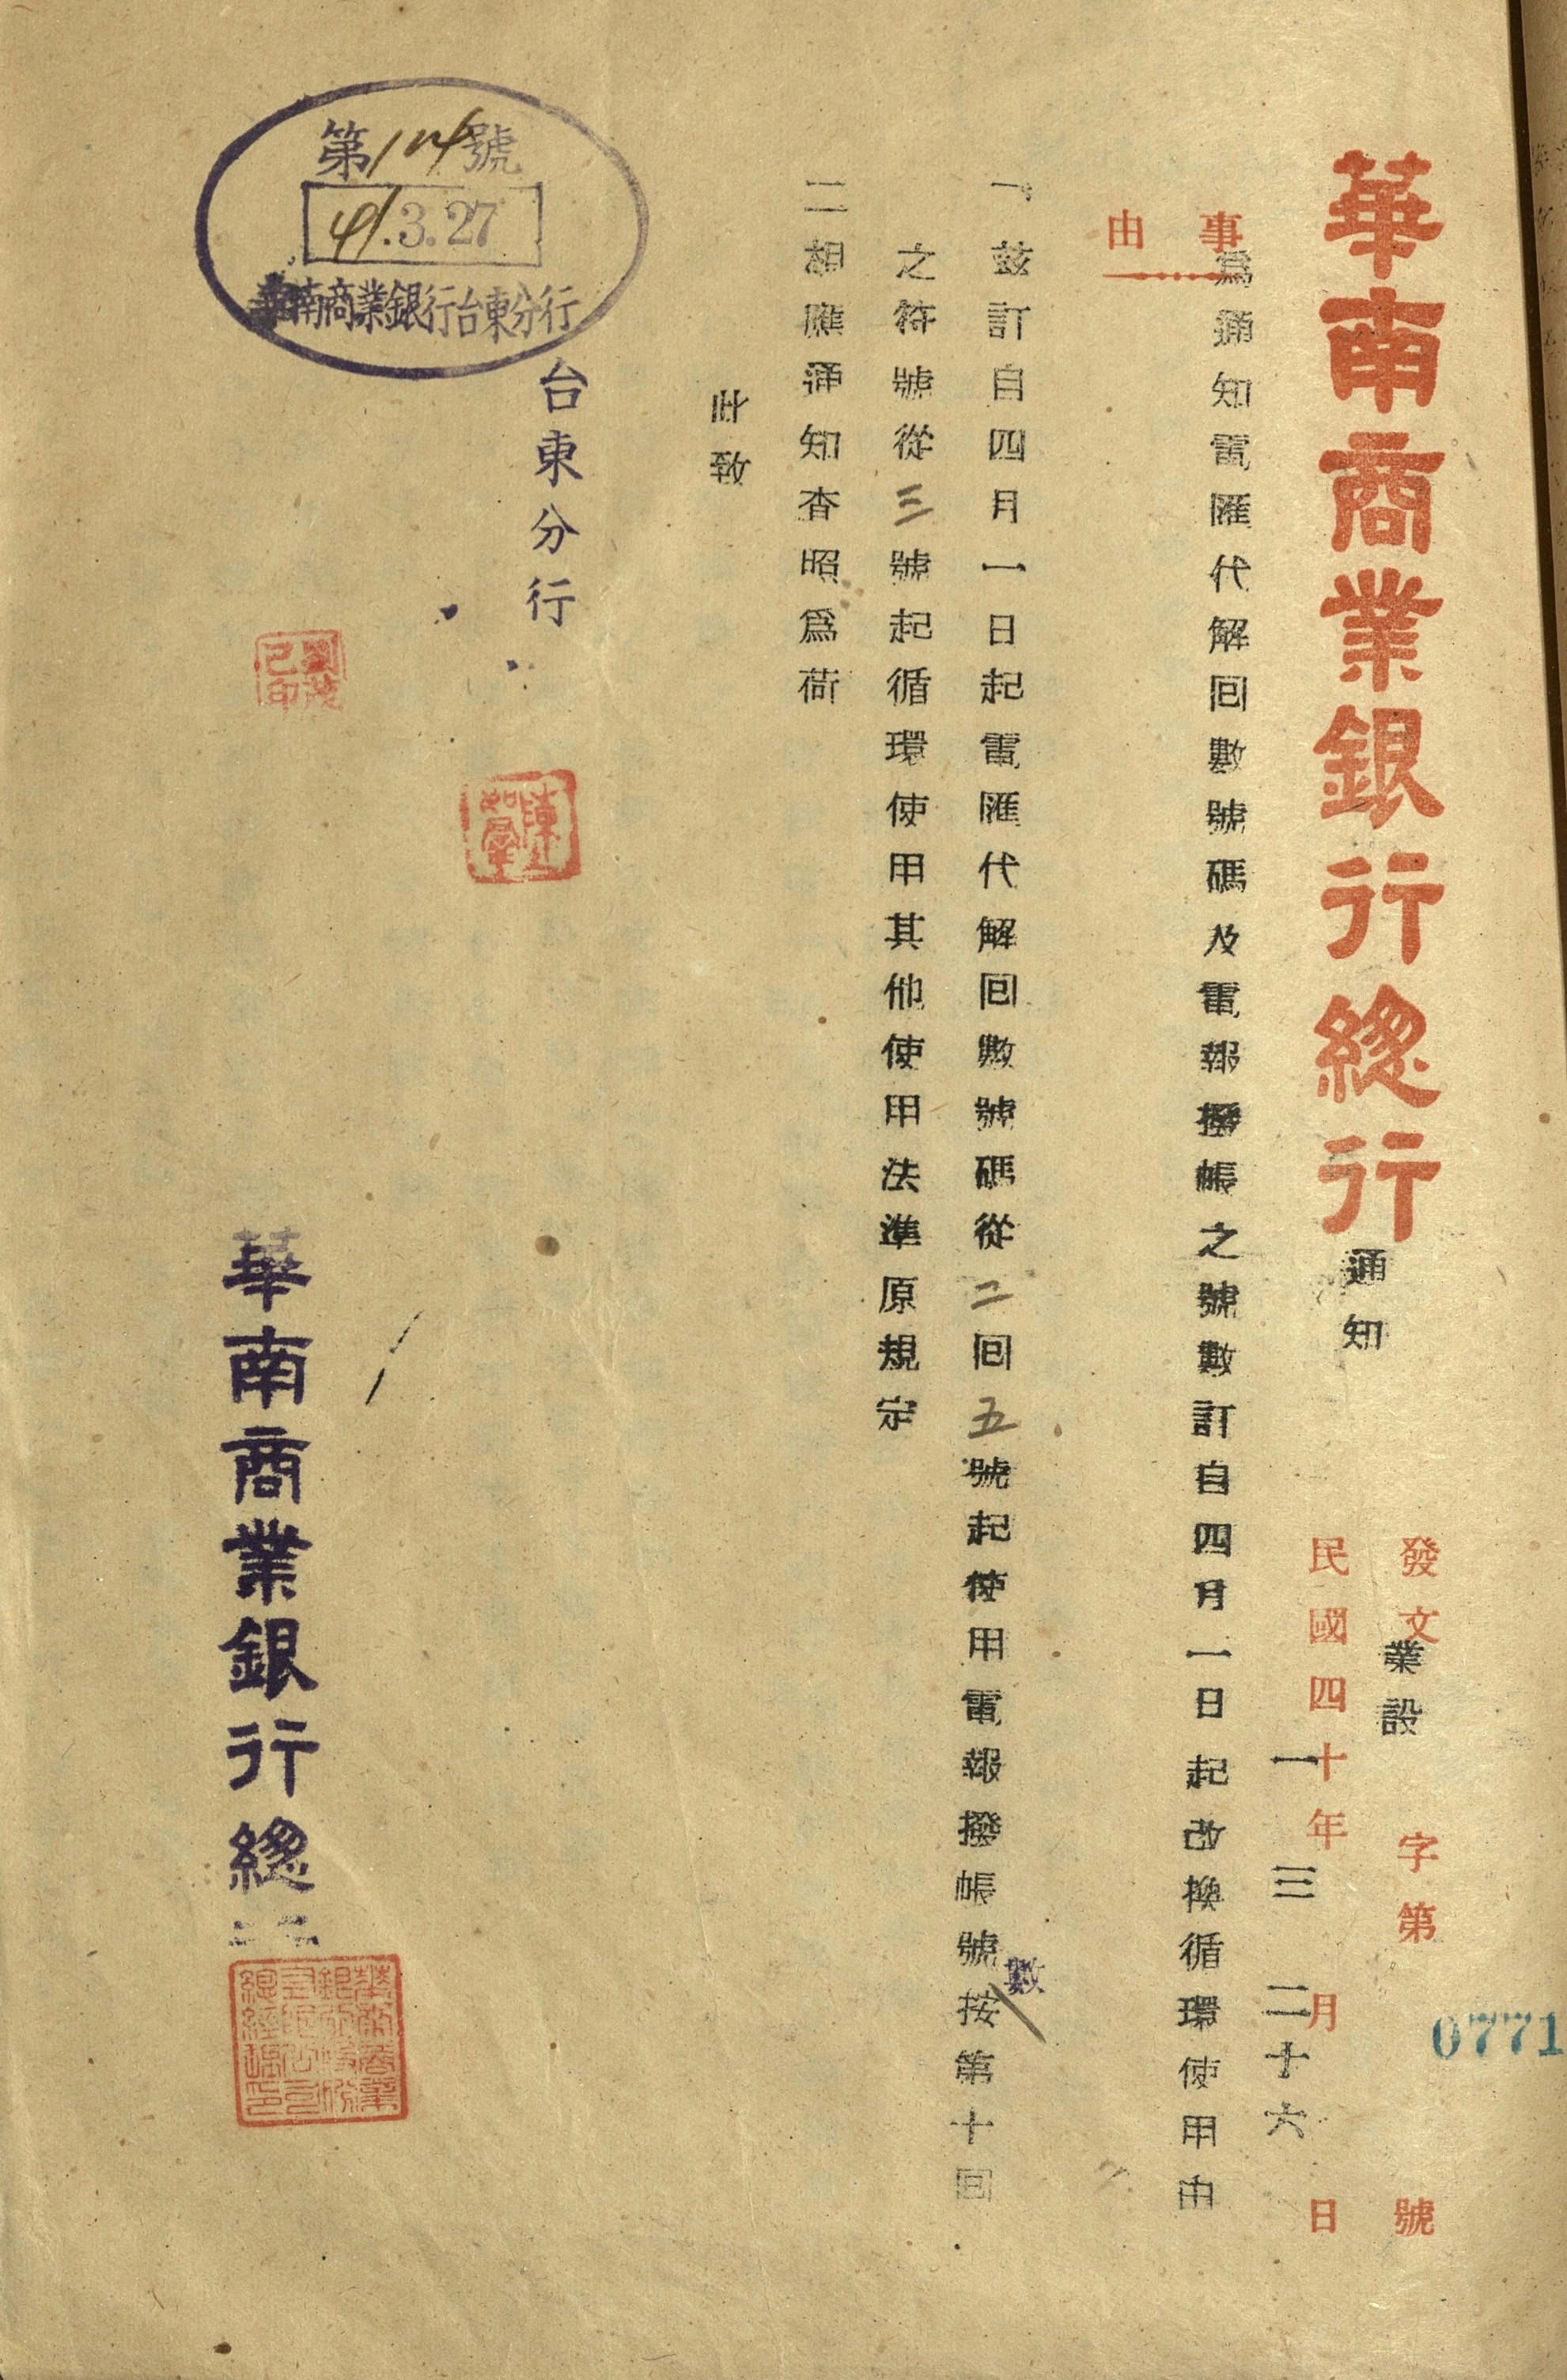 華南商業銀行總行 通知
發文 業設 字第 0771 號
民國四十一年 三 月 二十六 日
事由 爲通知電匯代解回數號碼及電報撥帳之號數訂自四月一日起改換循環使用由
一 茲訂自四月一日起電匯代解回數號碼從二回五號起使用電報撥帳號數按第十回
之符號從三號起循環使用其他使用法準原規定
二 相應通知查照爲荷
此致
台東分行
華南商業銀行總
第174號
41.3.27
華南商業銀行台東分行